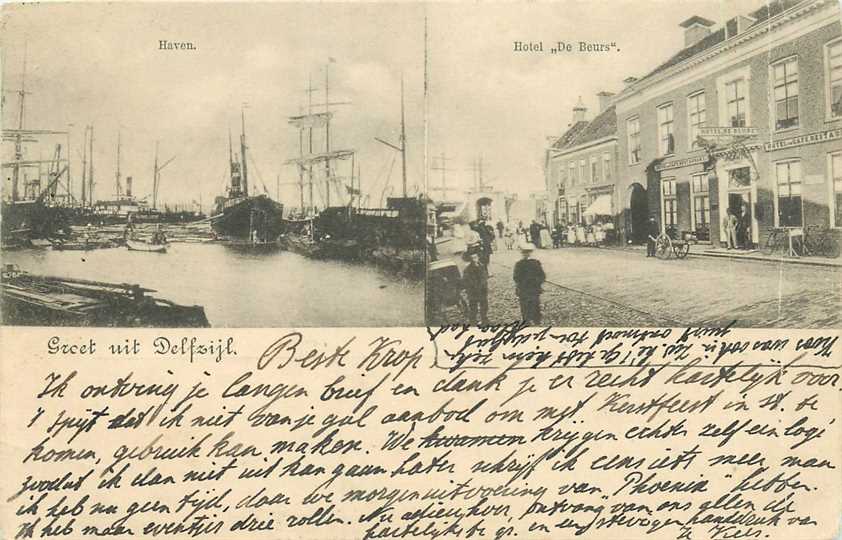 Haven.
Hotel „De Beurs“.
HOTEL DE BEURS
HOTEL CAFÉ RESTAU
Groet uit Delfzijl.
Beste Krop
Ik ontving je langen brief en dank je er recht hartelijk voor.
't spijt dat ik niet van je gul aanbod om met Kerstfeest in st. te
komen, gebruik kan maken. We krijgen echter zelf een logé
zoodat ik dan niet uit kan gaan. Later schrijf ik eens iets meer, maar
ik heb nu geen tijd, daar we morgen uitvoering van "Phoenix" hebben.
Ik heb maar eventjes drie rollen. Nu adieu hoor, ontvang van ons allen de
hartelijkste gr. en een stevigen handdruk van